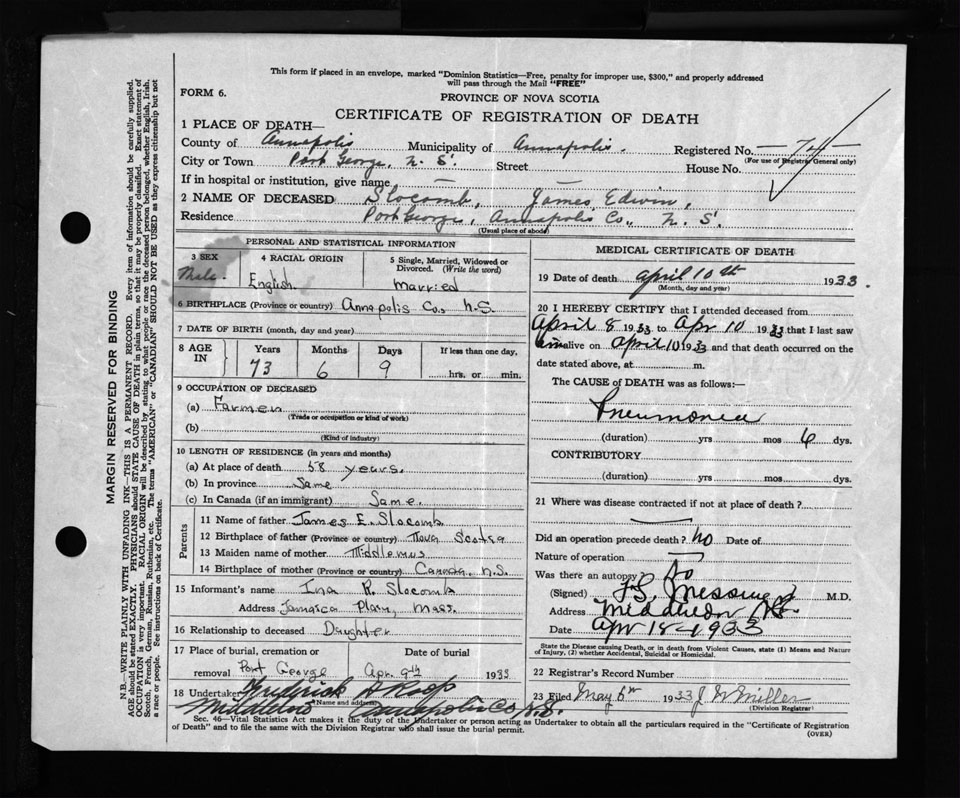 This form if placed in an envelope, marked "Dominion Statistics—Free, penalty for improper use, $300," and properly addressed
will pass through the Mail "FREE"
FORM 6.
PROVINCE OF NOVA SCOTIA
CERTIFICATE OF REGISTRATION OF DEATH
1 PLACE OF DEATH—
County of Annapolis Municipality of Annapolis. Registered No.
(For use of Registrar General only)
City or Town Port George, N. S. Street House No.
If in hospital or institution, give name —
2 NAME OF DECEASED Slocomb, James Edwin,
Residence Port George, Annapolis Co., N. S.
(Usual place of abode)
MARGIN RESERVED FOR BINDING
N.B.—WRITE PLAINLY WITH UNFADING INK—THIS IS A PERMANENT RECORD. Every item of information should be carefully supplied.
AGE should be stated EXACTLY. PHYSICIANS should STATE CAUSE OF DEATH in plain terms, so that it may be properly classified. Exact statement of
OCCUPATION is very important. RACIAL ORIGIN will be described by stating to what people or race the deceased person belonged, whether English, Irish,
Scotch, French, German, Russian, Ruthenian, etc. The terms "AMERICAN" or "CANADIAN" SHOULD NOT BE USED as they express citizenship but not
a race or people. See instructions on back of Certificate.
PERSONAL AND STATISTICAL INFORMATION
3 SEX 4 RACIAL ORIGIN 5 Single, Married, Widowed or
Divorced. (Write the word)
Male. English. Married
6 BIRTHPLACE (Province or country) Annapolis Co., N.S.
7 DATE OF BIRTH (month, day and year)
8 AGE
IN Years Months Days If less than one day,
73 6 9 hrs. or min.
9 OCCUPATION OF DECEASED
(a) Farmer
(Trade or occupation or kind of work)
(b)
(Kind of industry)
10 LENGTH OF RESIDENCE (in years and months)
(a) At place of death 58 years.
(b) In province Same
(c) In Canada (if an immigrant) Same.
Parents
11 Name of father James E. Slocomb
12 Birthplace of father (Province or country) Nova Scotia
13 Maiden name of mother Middlemus
14 Birthplace of mother (Province or country) N.S.
15 Informant's name Ina R. Slocomb
Address Jamaica Plain, Mass.
16 Relationship to deceased Daughter
17 Place of burial, cremation or
removal Port George Date of burial
Apr. 9th 1933
18 Undertaker Frederick A Roop
(Name and address)
Middleton Annapolis Co N.S.
MEDICAL CERTIFICATE OF DEATH
19 Date of death April 10th 1933.
(Month, day and year)
20 I HEREBY CERTIFY that I attended deceased from
April 8 1933 to Apr 10 1933 that I last saw
him alive on April 10 1933 and that death occurred on the
date stated above, at m.
The CAUSE of DEATH was as follows:
Pneumonia
(duration) yrs mos 6 dys.
CONTRIBUTORY
(duration) yrs mos dys.
21 Where was disease contracted if not at place of death?
Did an operation precede death? No Date of
Nature of operation —
Was there an autopsy? No
(Signed) Messinger M.D.
Address Middleton NS.
Date Apr 18—1933
State the Disease causing Death, or in death from Violent Causes, state (1) Means and Nature
of Injury, (2) whether Accidental, Suicidal or Homicidal.
22 Registrar's Record Number
23 Filed May 6th 1933 J W Miller
(Division Registrar)
Sec. 46—Vital Statistics Act makes it the duty of the Undertaker or person acting as Undertaker to obtain all the particulars required in the "Certificate of Registration
of Death" and to file the same with the Division Registrar who shall issue the burial permit. (OVER)